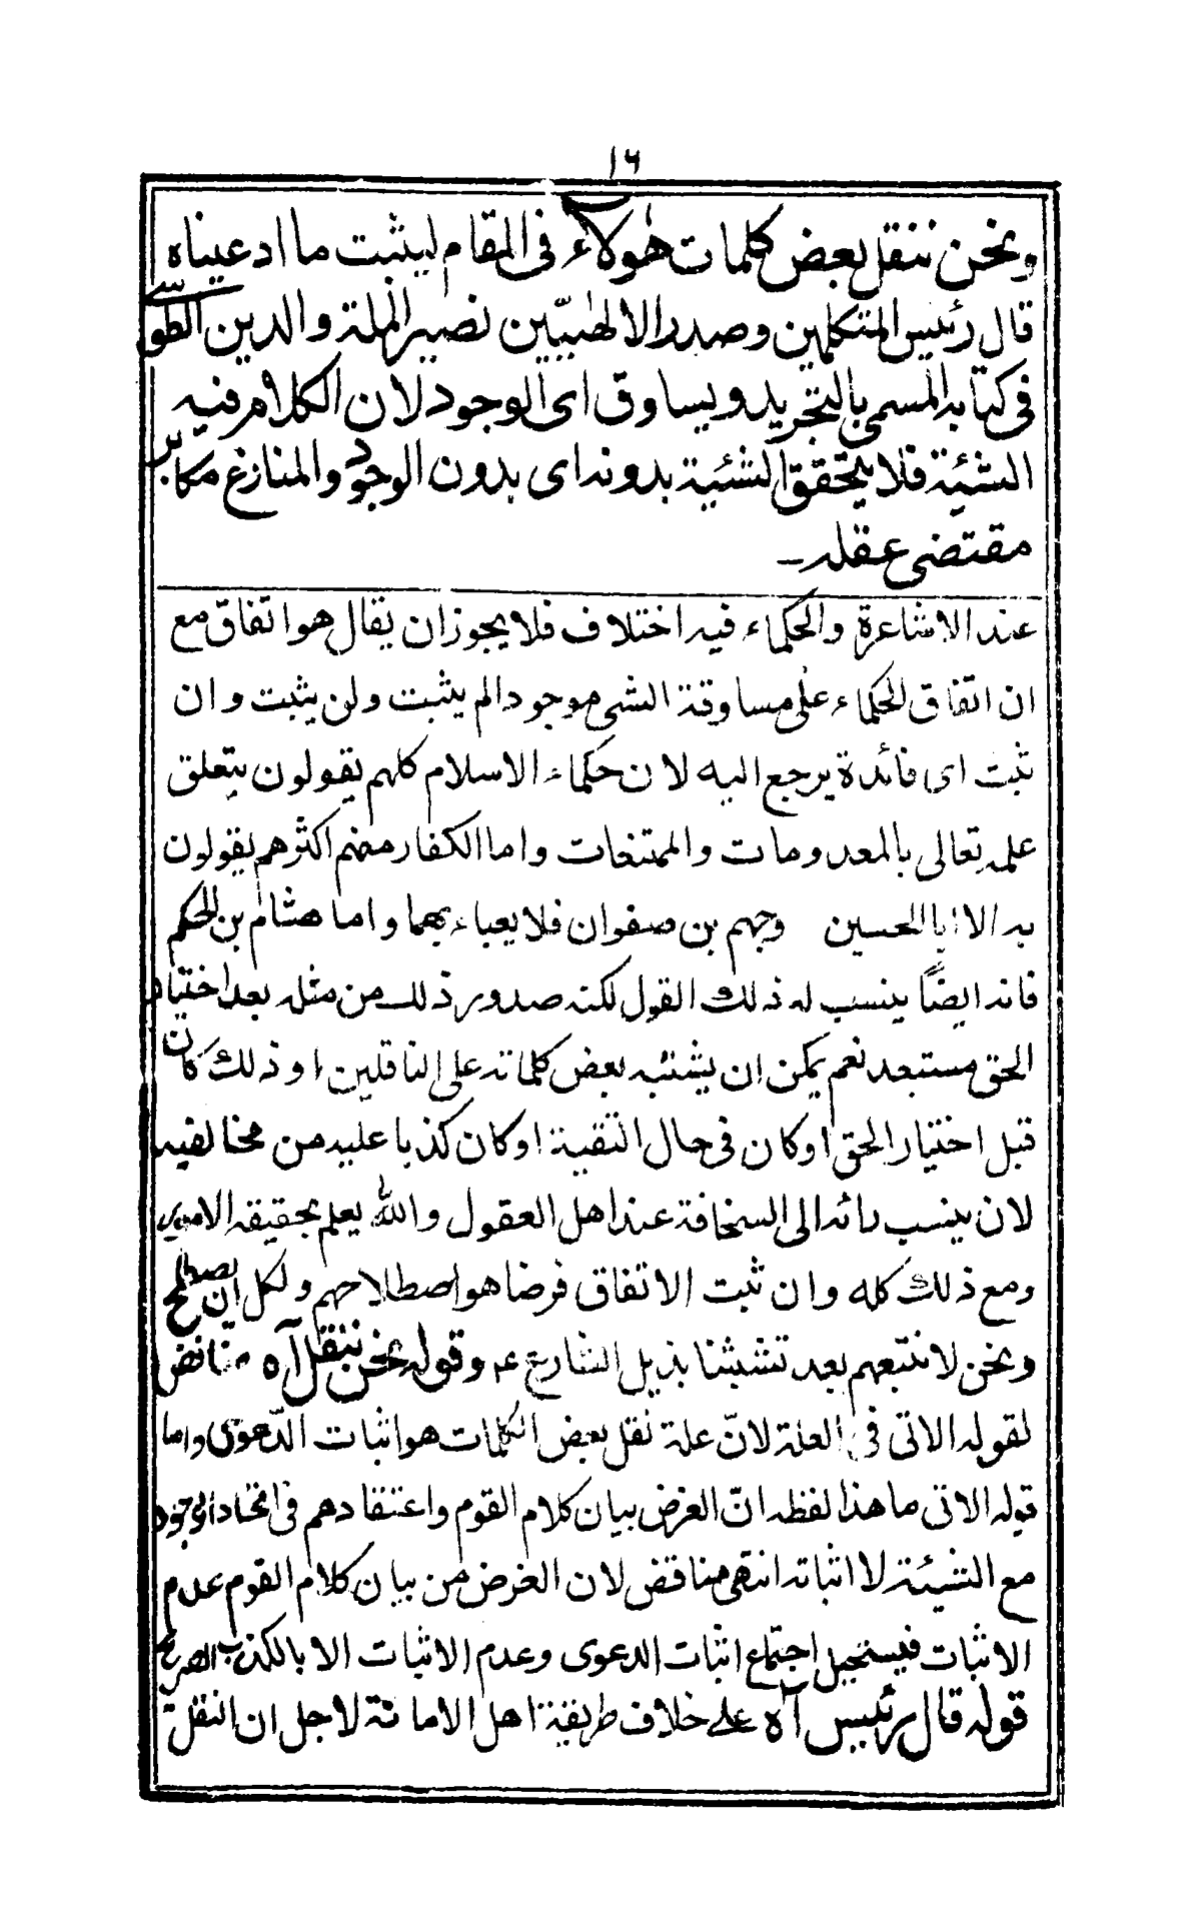 ١٦
ونحن ننقل بعض كلمات هؤلاء فى المقام ليثبت ما ادعيناه
قال رئيس المتكلمين وصدر الالهيّين نصير الملة والدين الطوسى
فى كتابه المسمى بالتجريد ويساوق اى الوجود لان الكلام فيه
الشيئية فلا يتحقق الشيئية بدونه اى بدون الوجود والمنازع مكابر
مقتضى عقله ـ
عند الاشاعرة والحكماء فيه اختلاف فلا يجوز ان يقال هو اتفاق مع
ان اتفاق الحكماء على مساوقة الشى موجودا لم يثبت ولن يثبت وان
ثبت اى فائدة يرجع اليه لان حكماء الاسلام كلهم يقولون بتعلق
علمه تعالى بالمعدومات والممتنعات واما الكفار منهم اكثرهم يقولون
به الا ابا الحسين وجهم بن صفوان فلا يعباء بهما واما هشام بن الحكم
فانه ايضًا ينسب له ذلك القول لكنه صدور ذلك من مثله بعد اختيار
الحق مستبعد نعم يمكن ان يشتبه بعض كلماته على الناقلين او ذلك كان
قبل اختيار الحق او كان فى حال التقية او كان كذبا عليه من مخالفيه
لان ينسب رائه الى السخافة عند اهل العقول والله يعلم بحقيقه الامور
ومع ذلك كله وان ثبت الاتفاق فرضا هو اصطلاحهم ولكل ان يصطلح
ونحن لا نتبعهم بعد تشبثنا بذيل الشارع ع وقوله نحن ننقل آه مناقض
لقوله الاتى فى العلة لانّ علة نقل بعض الكلمات هو اثبات الدّعوى واما
قوله الاتى ما هذا لفظه انّ الغرض بيان كلام القوم واعتقادهم فى اتحاد الوجود
مع الشيئية لا اثباته انتهى مناقض لان الغرض من بيان كلام القوم عدم
الاثبات فيستحيل اجتماع اثبات الدعوى وعدم الاثبات الا بالكذب الصريح
قوله قال رئيس آه على خلاف طريقة اهل الامانة لاجل ان النقل